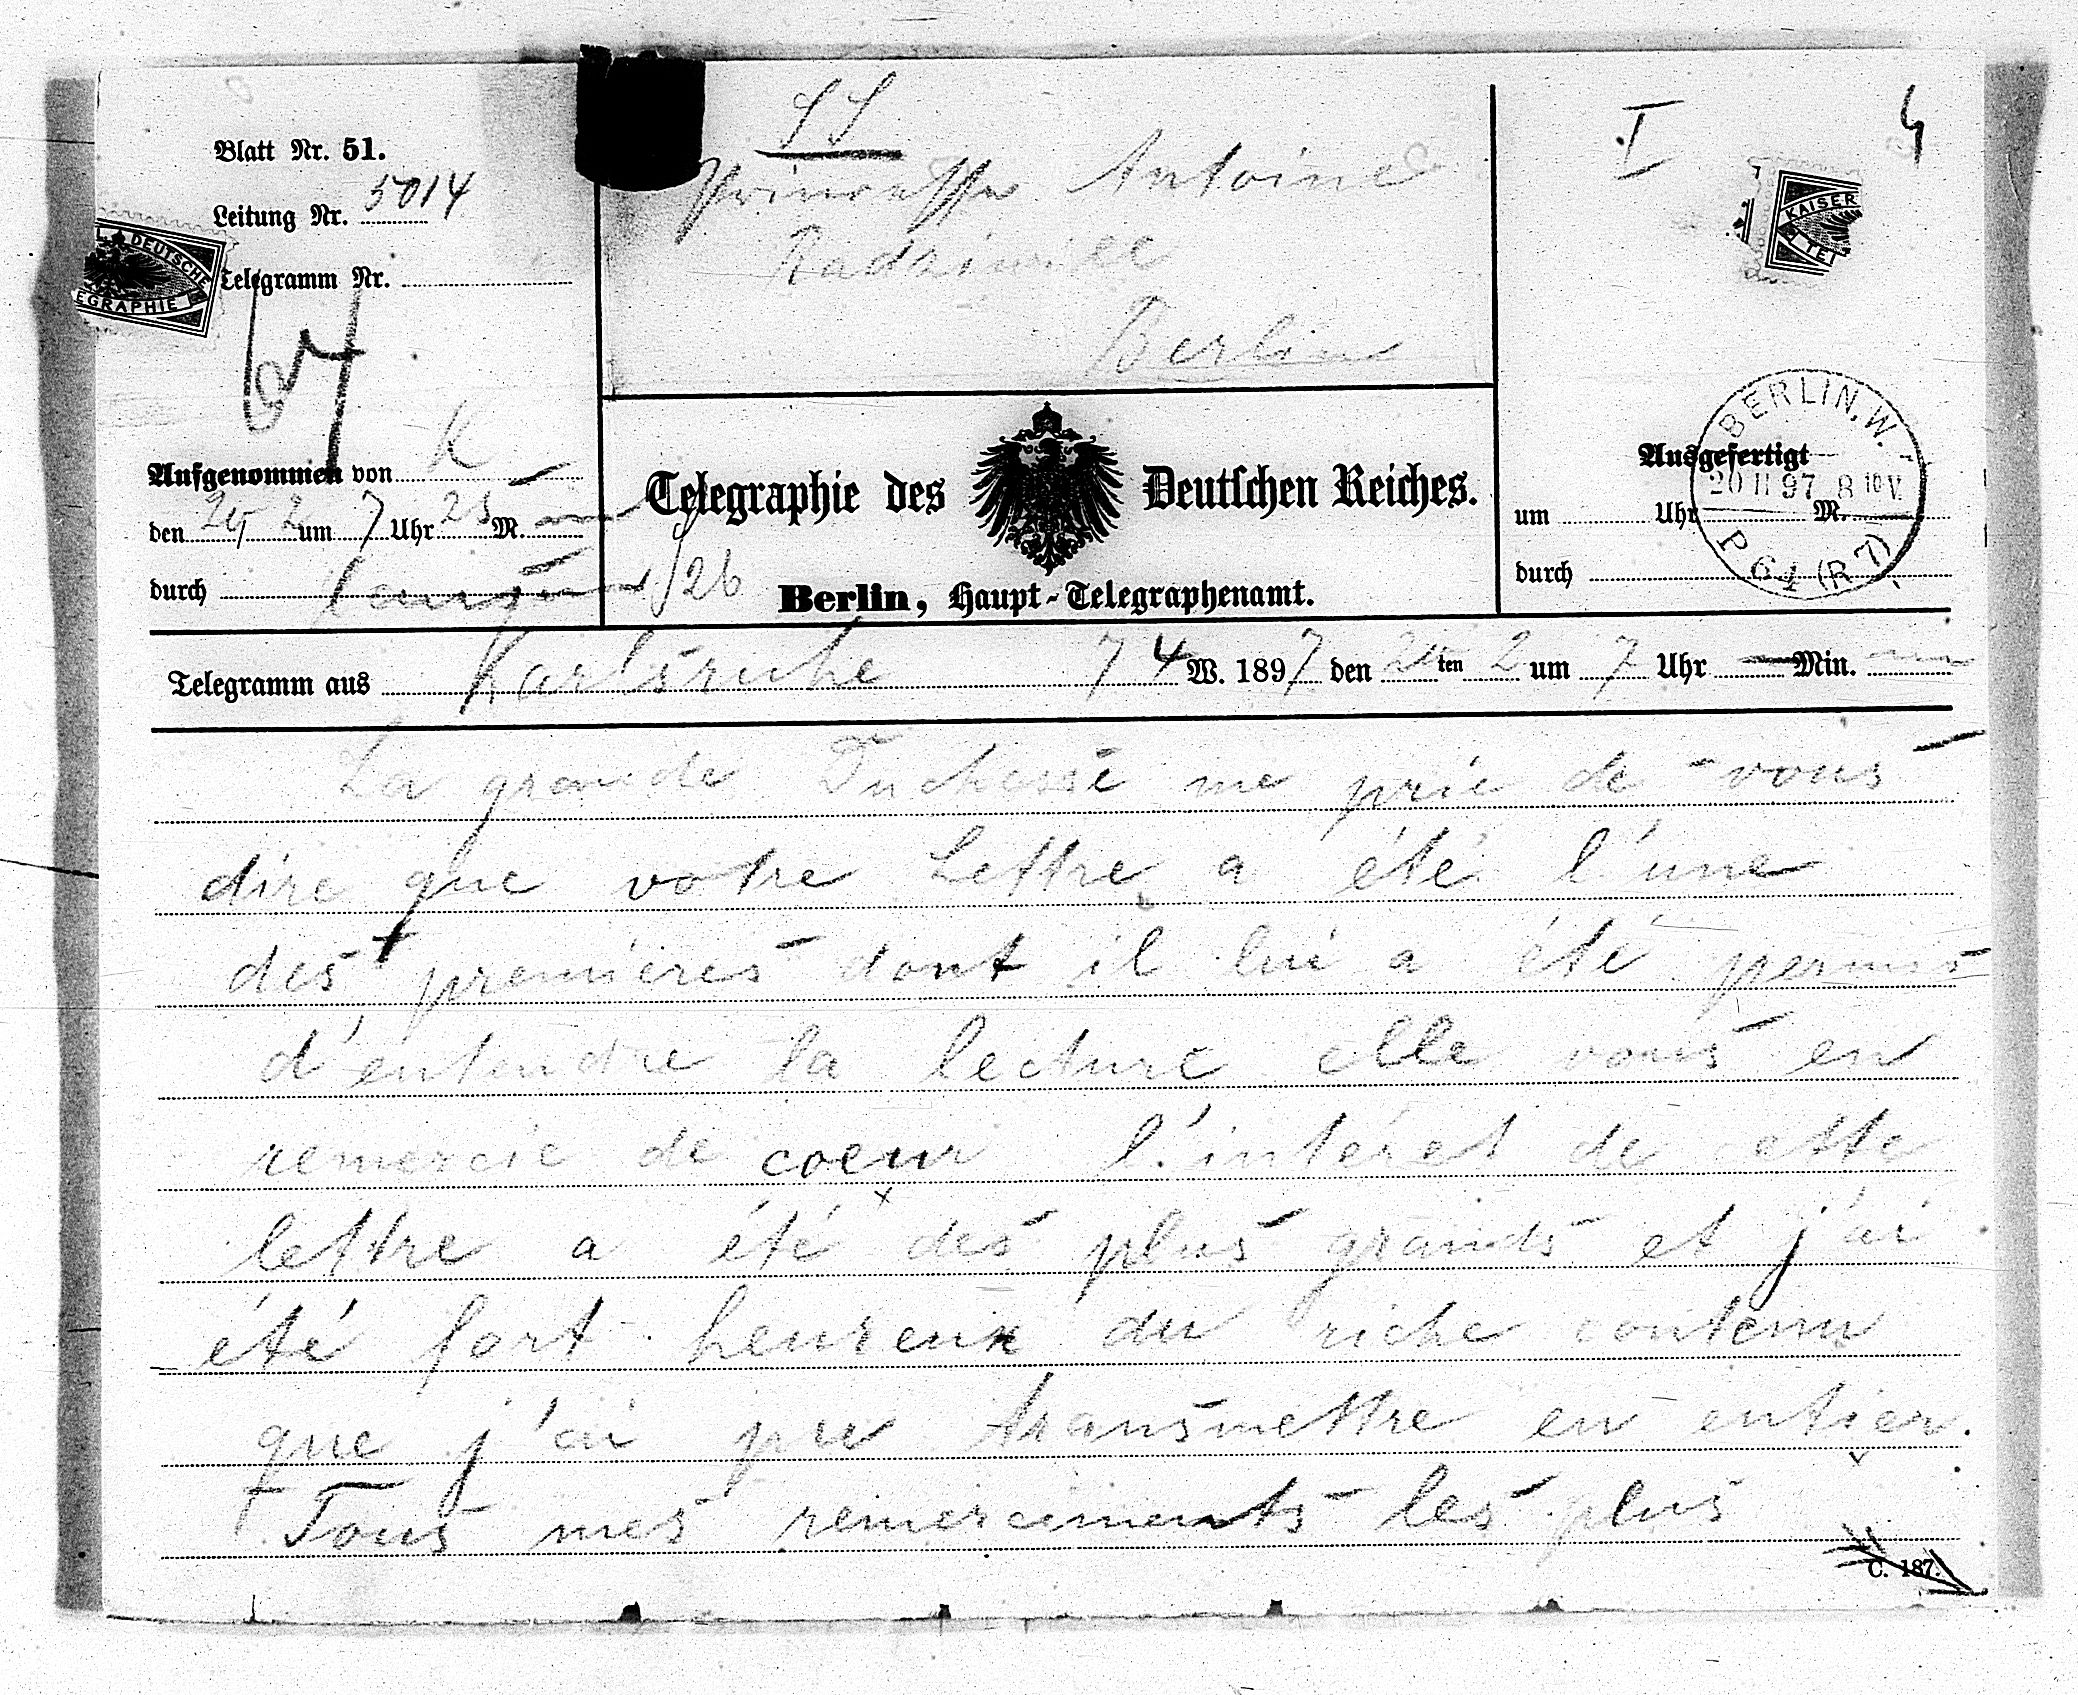 SS
I
Blatt Nr. 51.
Leitung Nr. 5014
Telegramm Nr.
Princesse Antoine
Radziwill
Berlin
L. DEUTSCHE
EGRAPHIE
KAISER
TE
Aufgenommen von K
den 20/2 um 7 Uhr 25 M.
durch
126
Telegraphie des Deutschen Reiches.
Berlin, Haupt-Telegraphenamt.
Ausgefertigt
um Uhr M.
durch
BERLIN.W.
20 II 97 8 10 V.
P 64 (R 7)
Telegramm aus Karlsruhe 74 W. 1897 den 20ten 2 um 7 Uhr — Min.
La grande Duchesse me prie de vous
dire que votre Lettre a été l'une
des premières dont il lui a été permis
d'entendre la lecture elle vous en
remercie de coeur l'intéret de cette
lettre a été des plus grands et j'ai
été fort heureux du riche contenu
que j'ai pu transmettre en entier.
Tous mes remerciments les plus
C. 187.